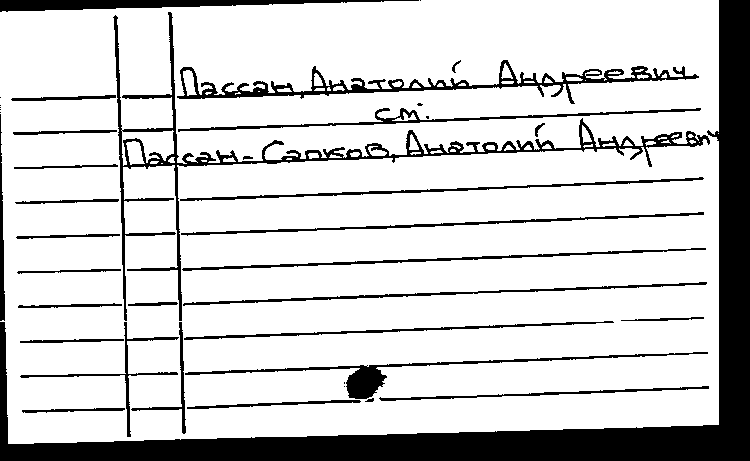 Пассан, Анатолий Андреевич
см.
Пассан-Сапков, Анатолий Андреевич